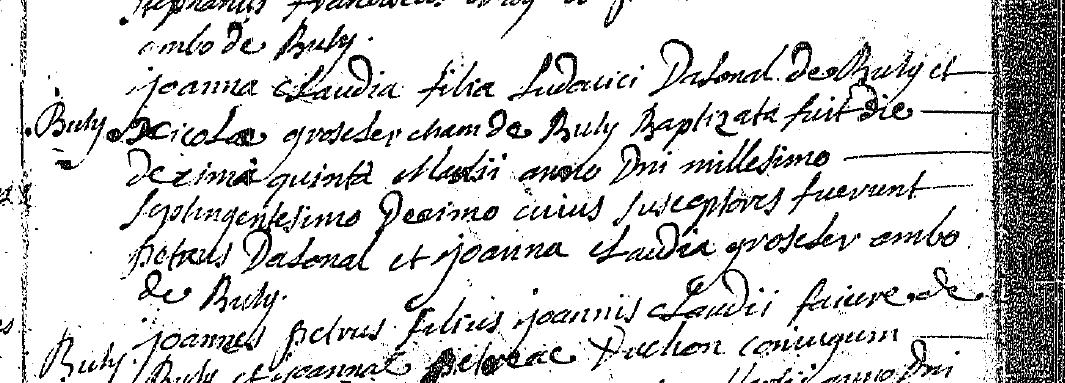 Stephanus Franciscus
ambo de Buly.
joanna claudia filia Ludovici Dasonal de Buly et
Buly Nicolae groscler cham de Buly Baptizata fuit die
decima quinta Martii anno Dni millesimo
septingentesimo Decimo cuius susceptores fuerunt
petrus Dasonal et joanna claudia groscler ambo
de Buly.
joannes petrus filius joannis claudii faivre de
Buly. Buly et joannae petreae Vuchon coniugum
Martii anno Dni